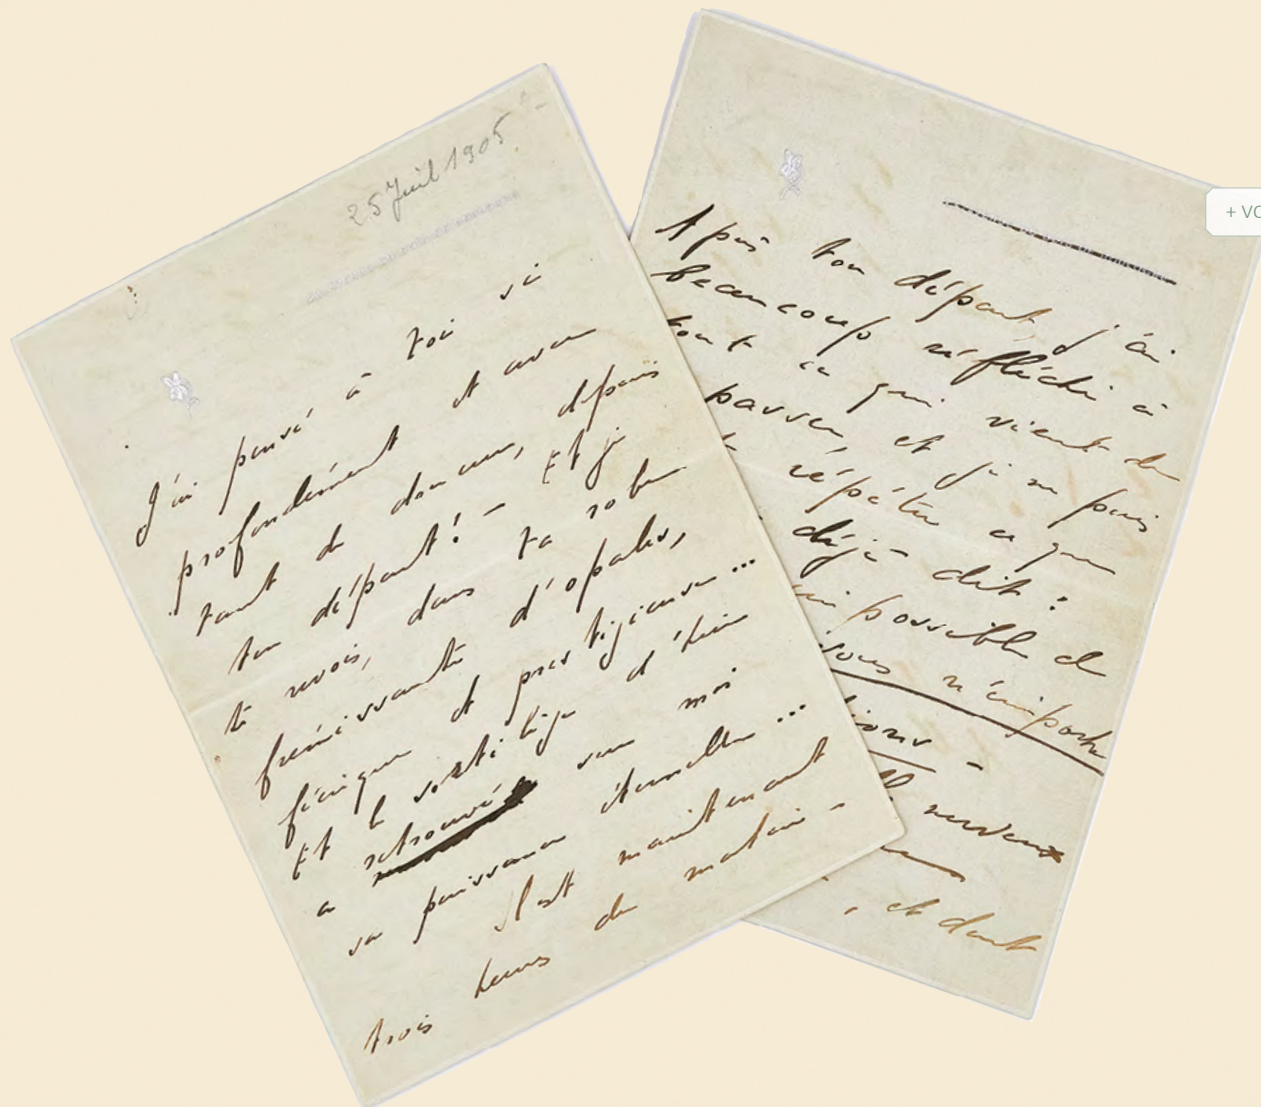 25 Juil 1905.
J'ai pensé à toi si
profondément et avec
tant de douceur, depuis
ton départ! – Et je
te revois, dans ta robe
frémissante d'opales,
féerique et prestigieuse...
Et le vertige d'hier
a retrouvé sur moi
sa puissance éternelle...
Il est maintenant
trois heures du matin –
Après ton départ, j'ai
beaucoup réfléchi à
tout ce qui vient de
passer, et je ne puis
répéter ce que
déjà dit :
impossible de
vous n'importe
–
nerveux
, et dont
+ VO